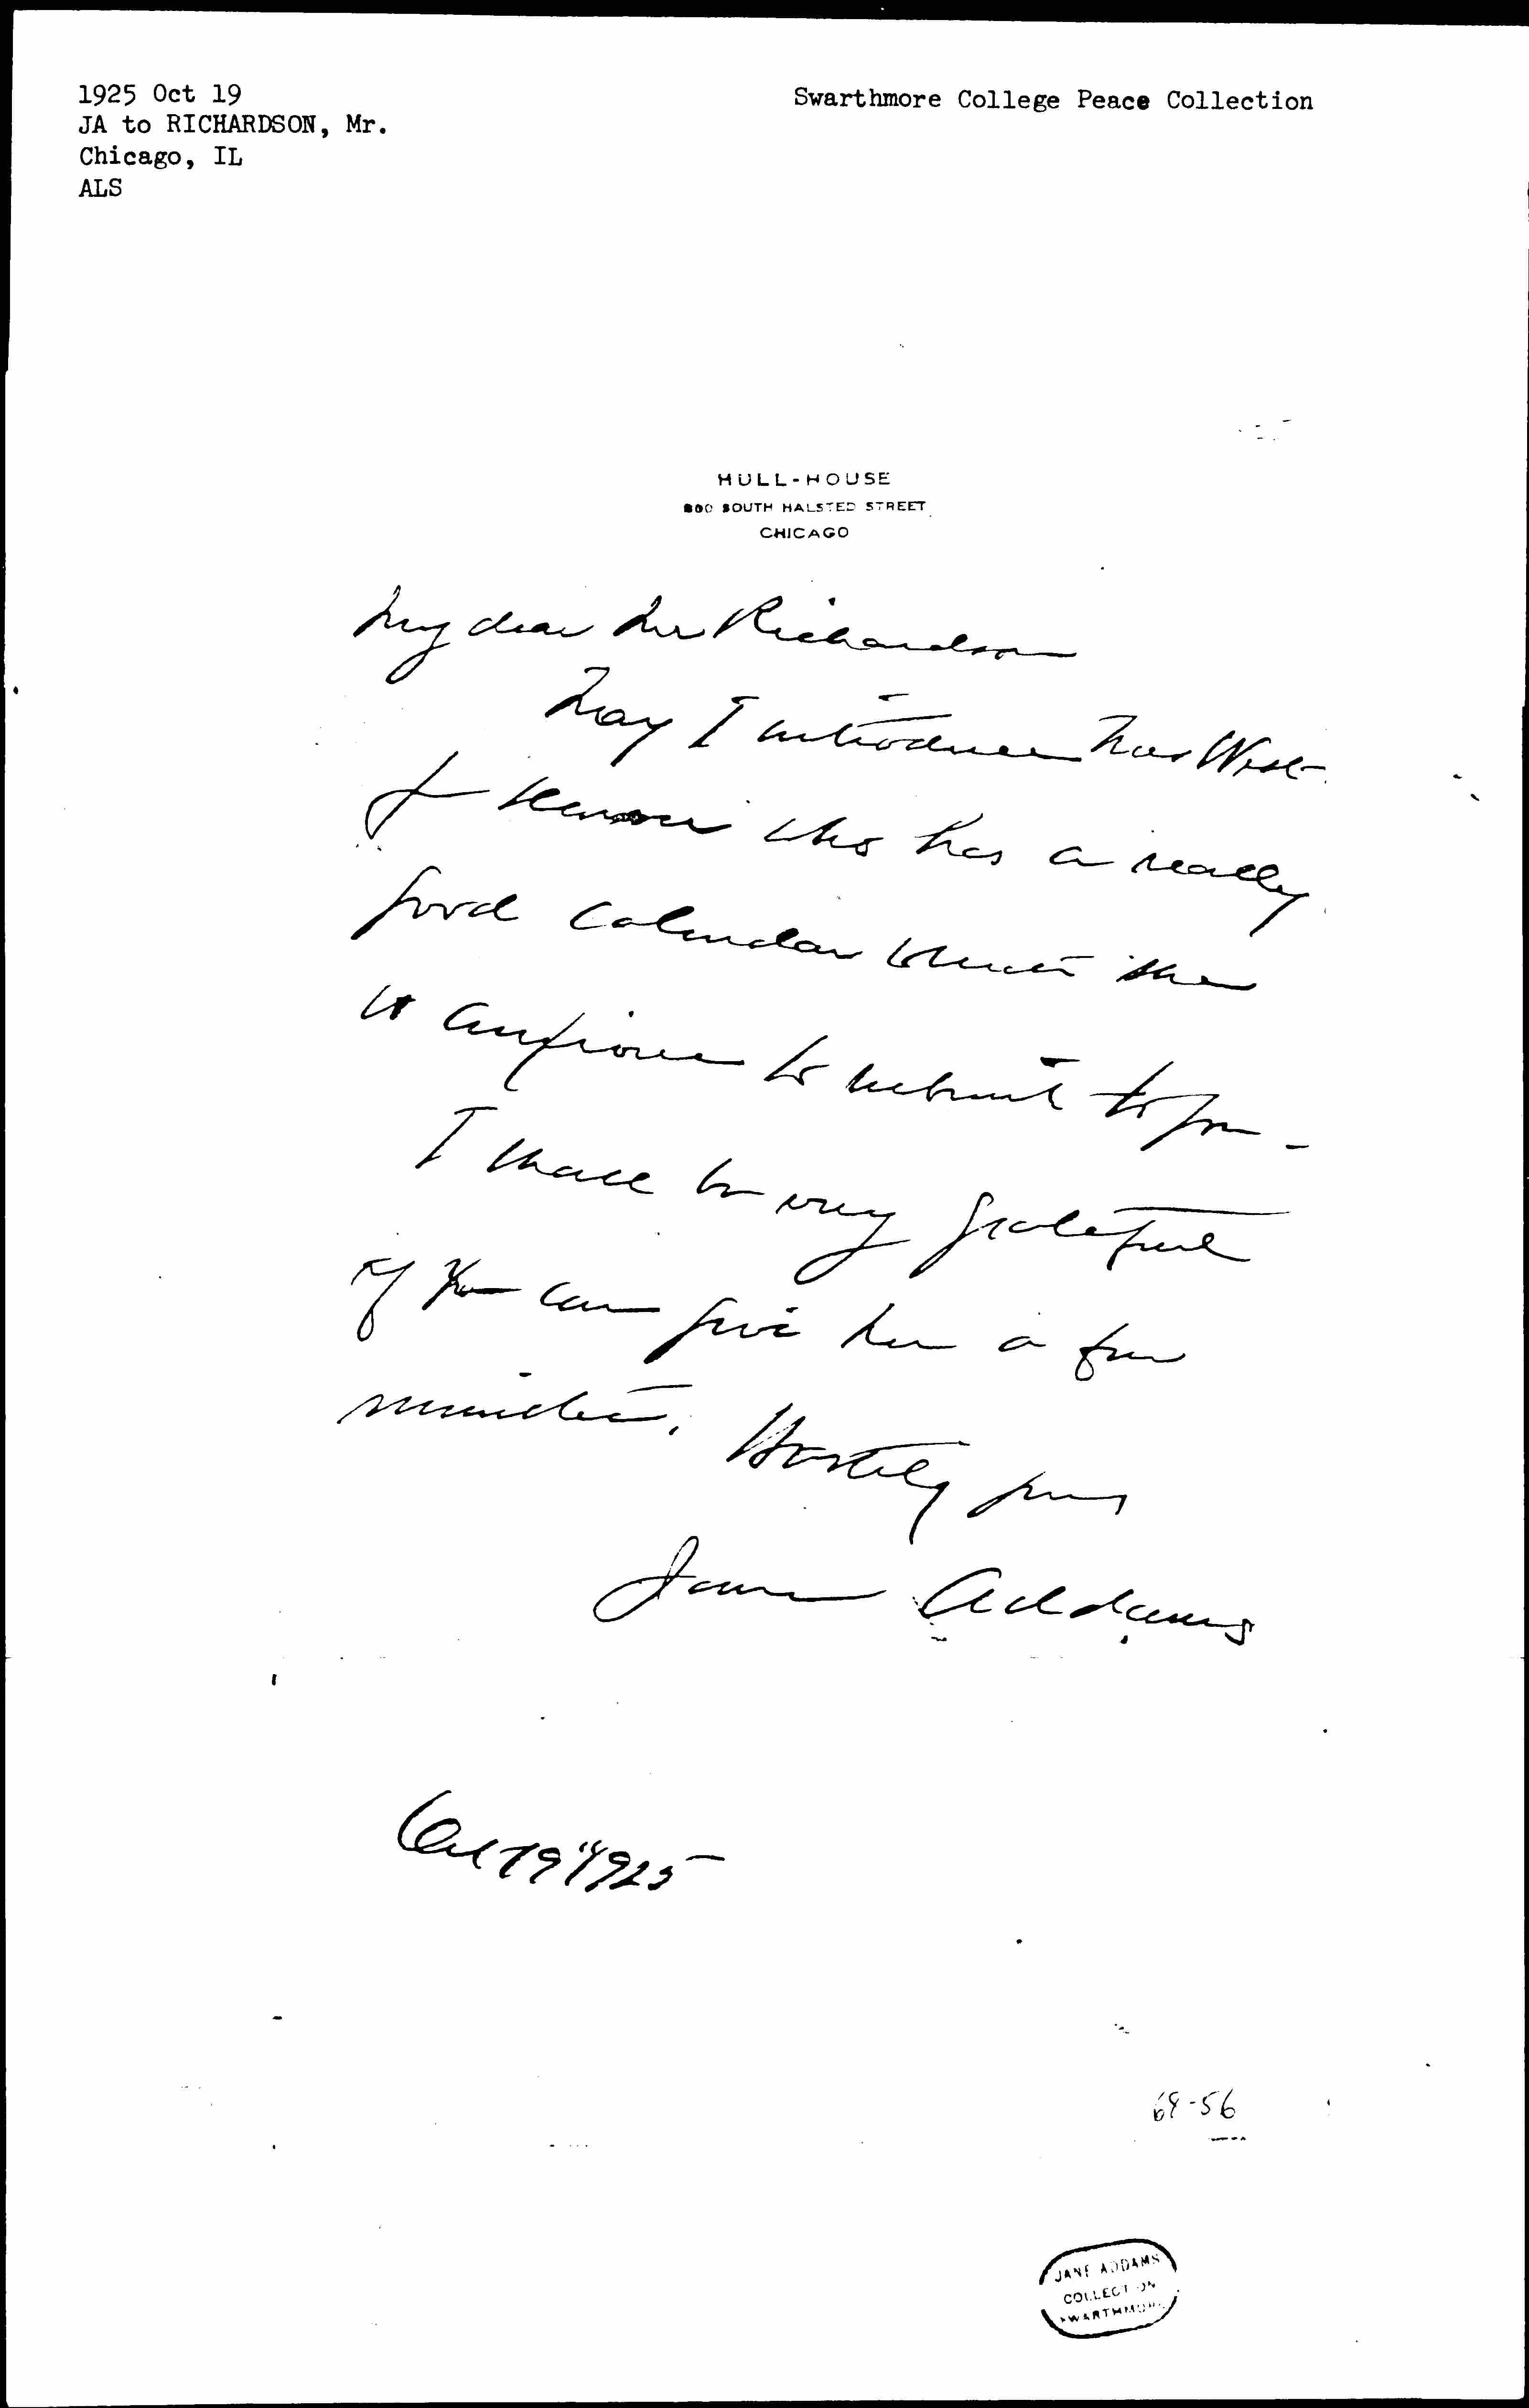 1925 Oct 19
JA to RICHARDSON, Mr.
Chicago, IL
ALS
Swarthmore College Peace Collection
HULL-HOUSE
800 SOUTH HALSTED STREET
CHICAGO
My dear Mr Richardson
May I introduce Miss West
of who has a really
good calendar which she
is anxious to submit to you -
I shall be very grateful
if you can give her a few
minutes. Hastily yours
Jane Addams
Oct 19" 1925
68-56
JANE ADDAMS
COLLECTION
SWARTHMORE